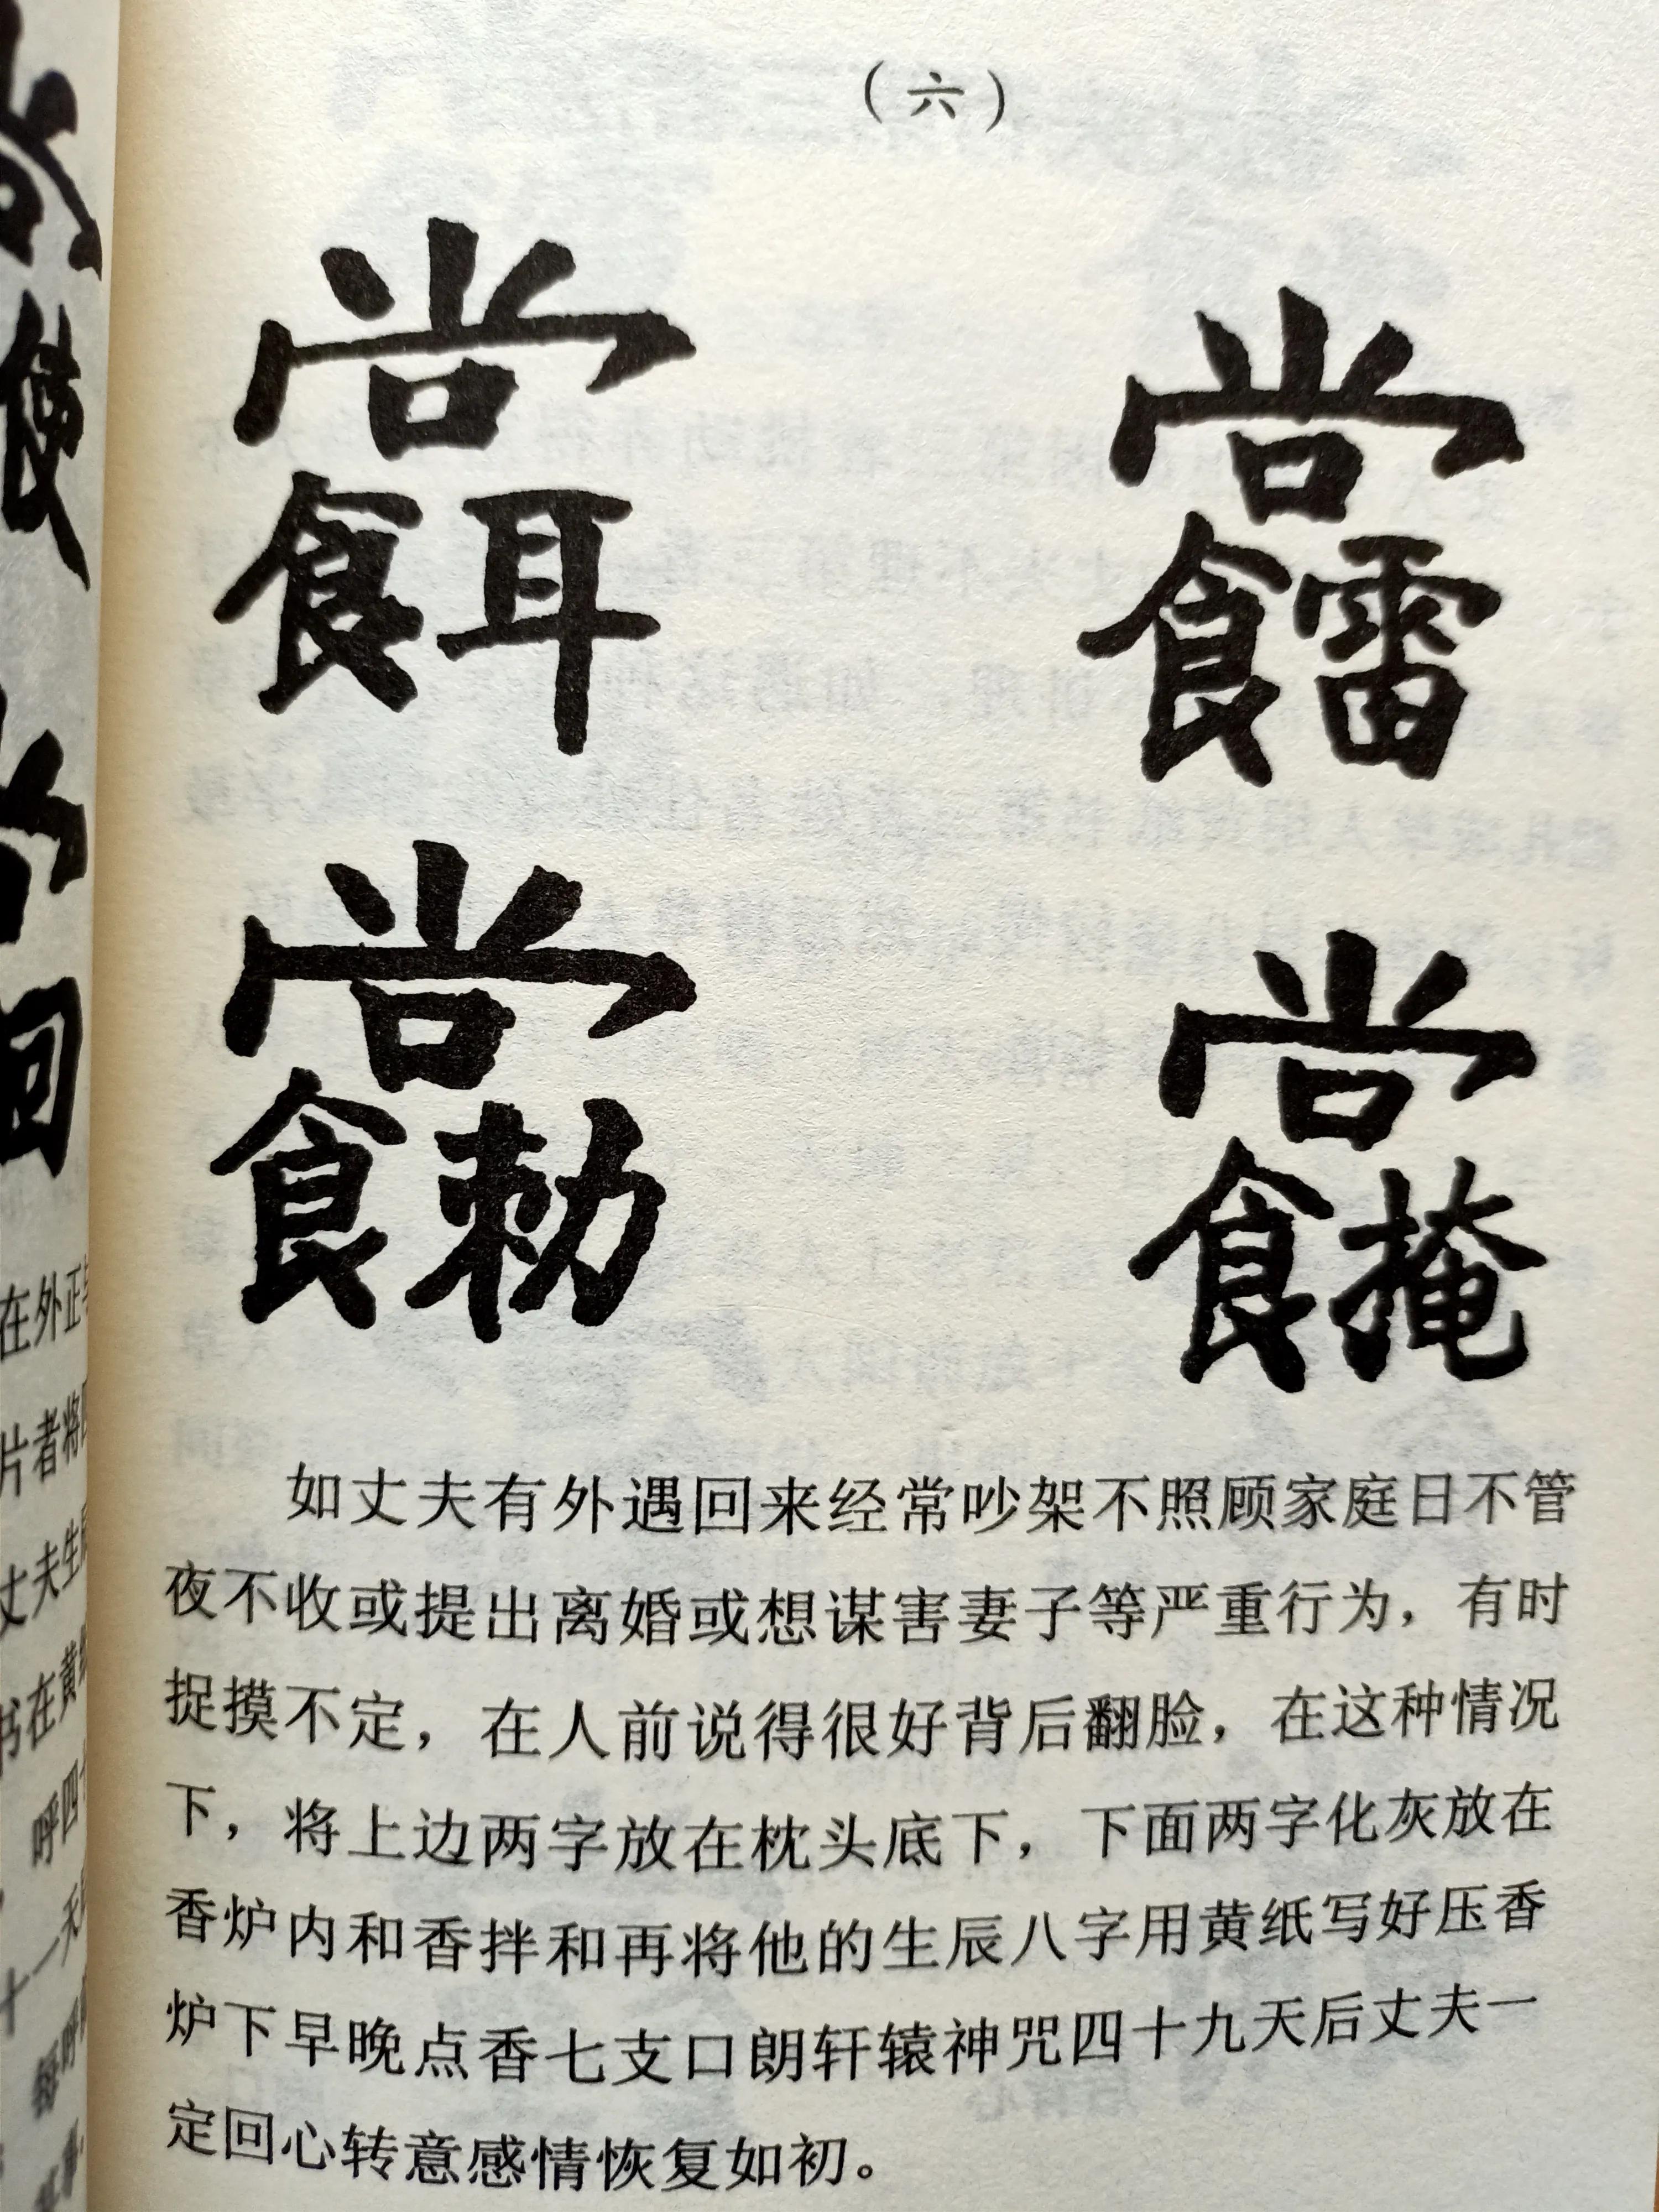 使
回
在外正
片者将
丈夫生
书在黄
呼四
十一天
（六）
尚 尚
食耳 食雷
尚 尚
食勅 食掩
如丈夫有外遇回来经常吵架不照顾家庭日不管
夜不收或提出离婚或想谋害妻子等严重行为，有时
捉摸不定，在人前说得很好背后翻脸，在这种情况
下，将上边两字放在枕头底下，下面两字化灰放在
香炉内和香拌和再将他的生辰八字用黄纸写好压香
炉下早晚点香七支口朗轩辕神咒四十九天后丈夫一
定回心转意感情恢复如初。